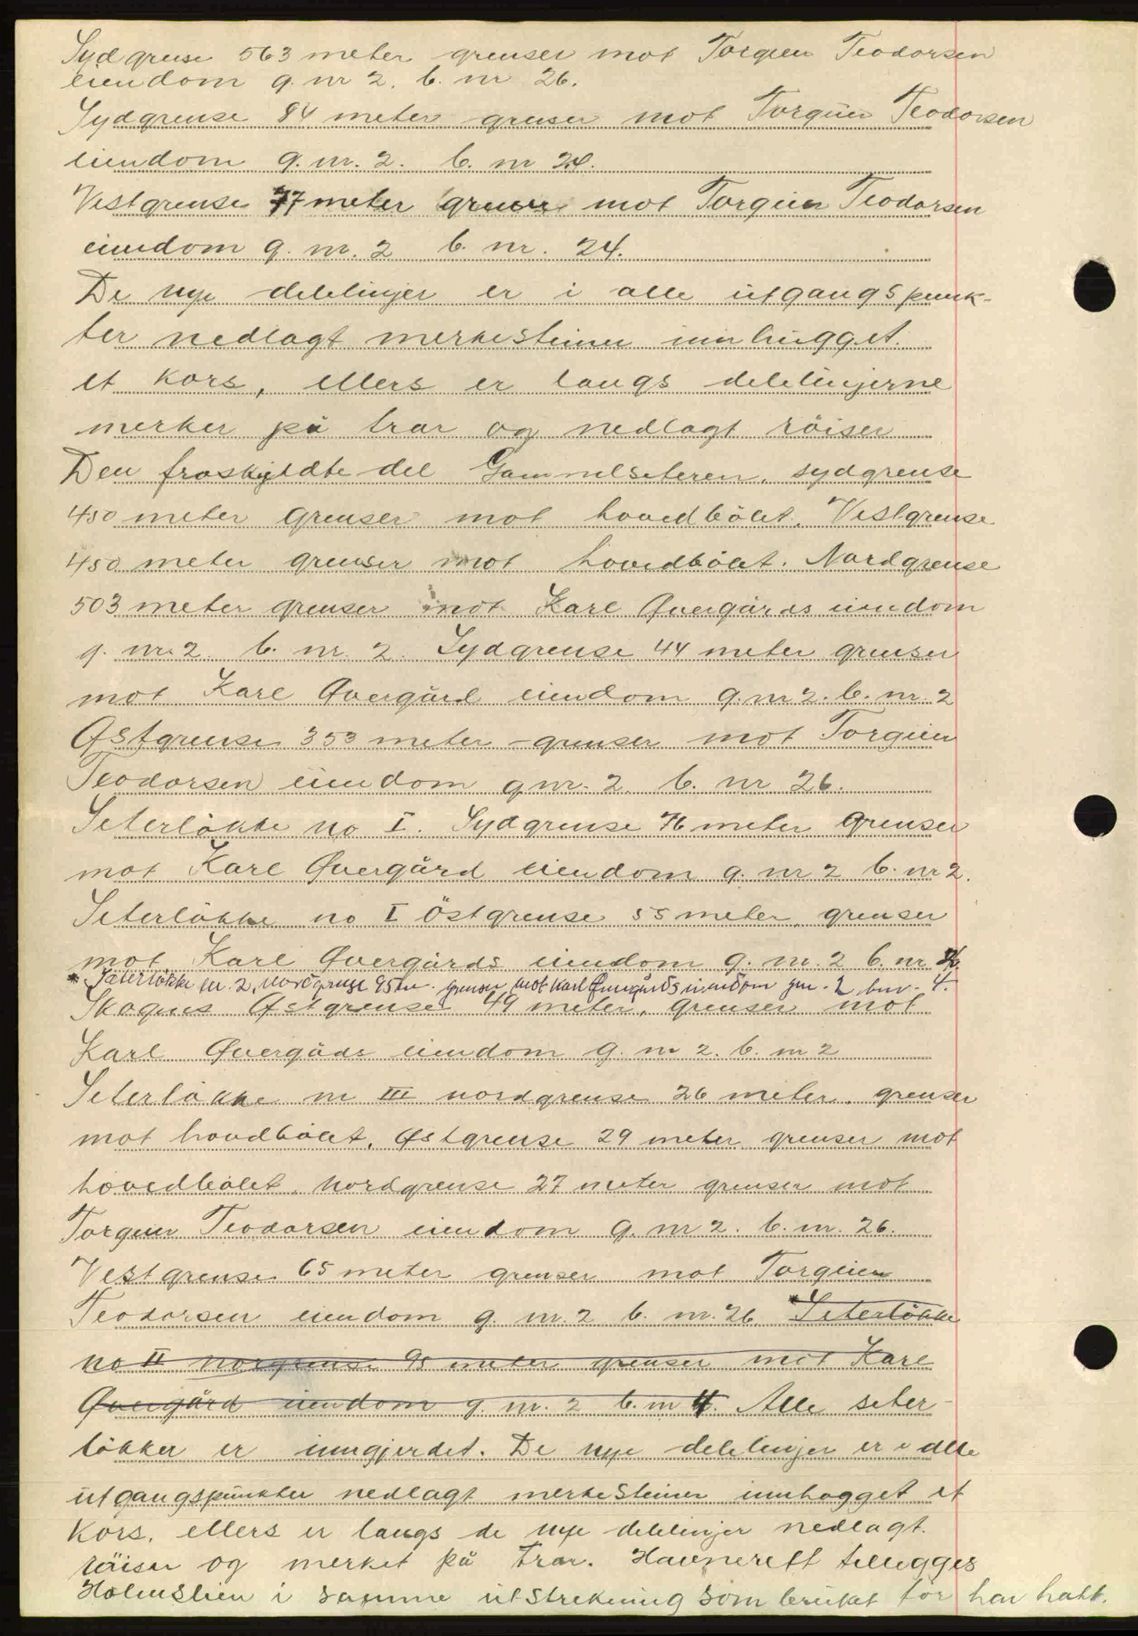 Sydgrense 563 meter grenser mot Torgeir Teodorsen
eiendom g. nr 2. b. nr 26.
Sydgrense 84 meter grenser mot Torgeir Teodorsen
eiendom g. nr. 2. b. nr 24.
Vestgrense 77 meter grenser mot Torgeir Teodorsen
eiendom g. nr. 2 b. nr. 24.
De nye delelinjer er i alle utgangspunk-
ter nedlagt merkesteiner innhugget
et kors, ellers er langs delelinjerne
merker på trær og nedlagt röiser
Den fraskyldte del Gammelseteren, sydgrense
450 meter grenser mot hovedbölet. Vestgrense
450 meter grenser mot hovedbölet. Nordgrense
503 meter grenser mot Karl Øvergårds eiendom
g. nr. 2 b. nr. 2. Sydgrense 44 meter grenser
mot Karl Øvergård eiendom g. nr 2. b. nr. 2
Østgrense 353 meter grenser mot Torgeir
Teodorsen eiendom g nr. 2 b. nr 26.
Seterlökke no I. Sydgrense 76 meter grenser
mot Karl Øvergård eiendom g. nr 2 b. nr 2.
Seterlökke no I Östgrense 55 meter grenser
mot Karl Øvergårds eiendom g. nr. 2 b. nr
* Seterlökke nr. 2, nordgrense 95 m. grenser mot Karl Øvergårds eiendom gnr. 2 bnr. 4.
Skogens Østgrense 49 meter, grenser mot
Karl Øvergåds eiendom g. nr 2. b. nr 2
Seterlökke nr III nordgrense 26 meter. grenser
mot hovdbölet. Østgrense 29 meter grenser mot
hovedbölet. Nordgrense 27 meter grenser mot
Torgeir Teodorsen eiendom g. nr 2. b. nr. 26.
Vestgrense 65 meter grenser mot Torgeir
Teodorsen eiendom g. nr. 2 b. nr. 26. * Seterlökke
no II norgrense 95 meter grenser mot Karl
Øvergård eiendom g. nr. 2 b. nr 4. Alle seter-
lökker er inngjerdet. De nye delelinjer er i alle
utgangspunkter nedlagt merkesteiner innhogget et
Kors, ellers er langs de nye delelinjer nedlagt
röiser og merket på trær. Havnerett tillegges
Holmslien i samme utstrekning som bruket för har hatt.